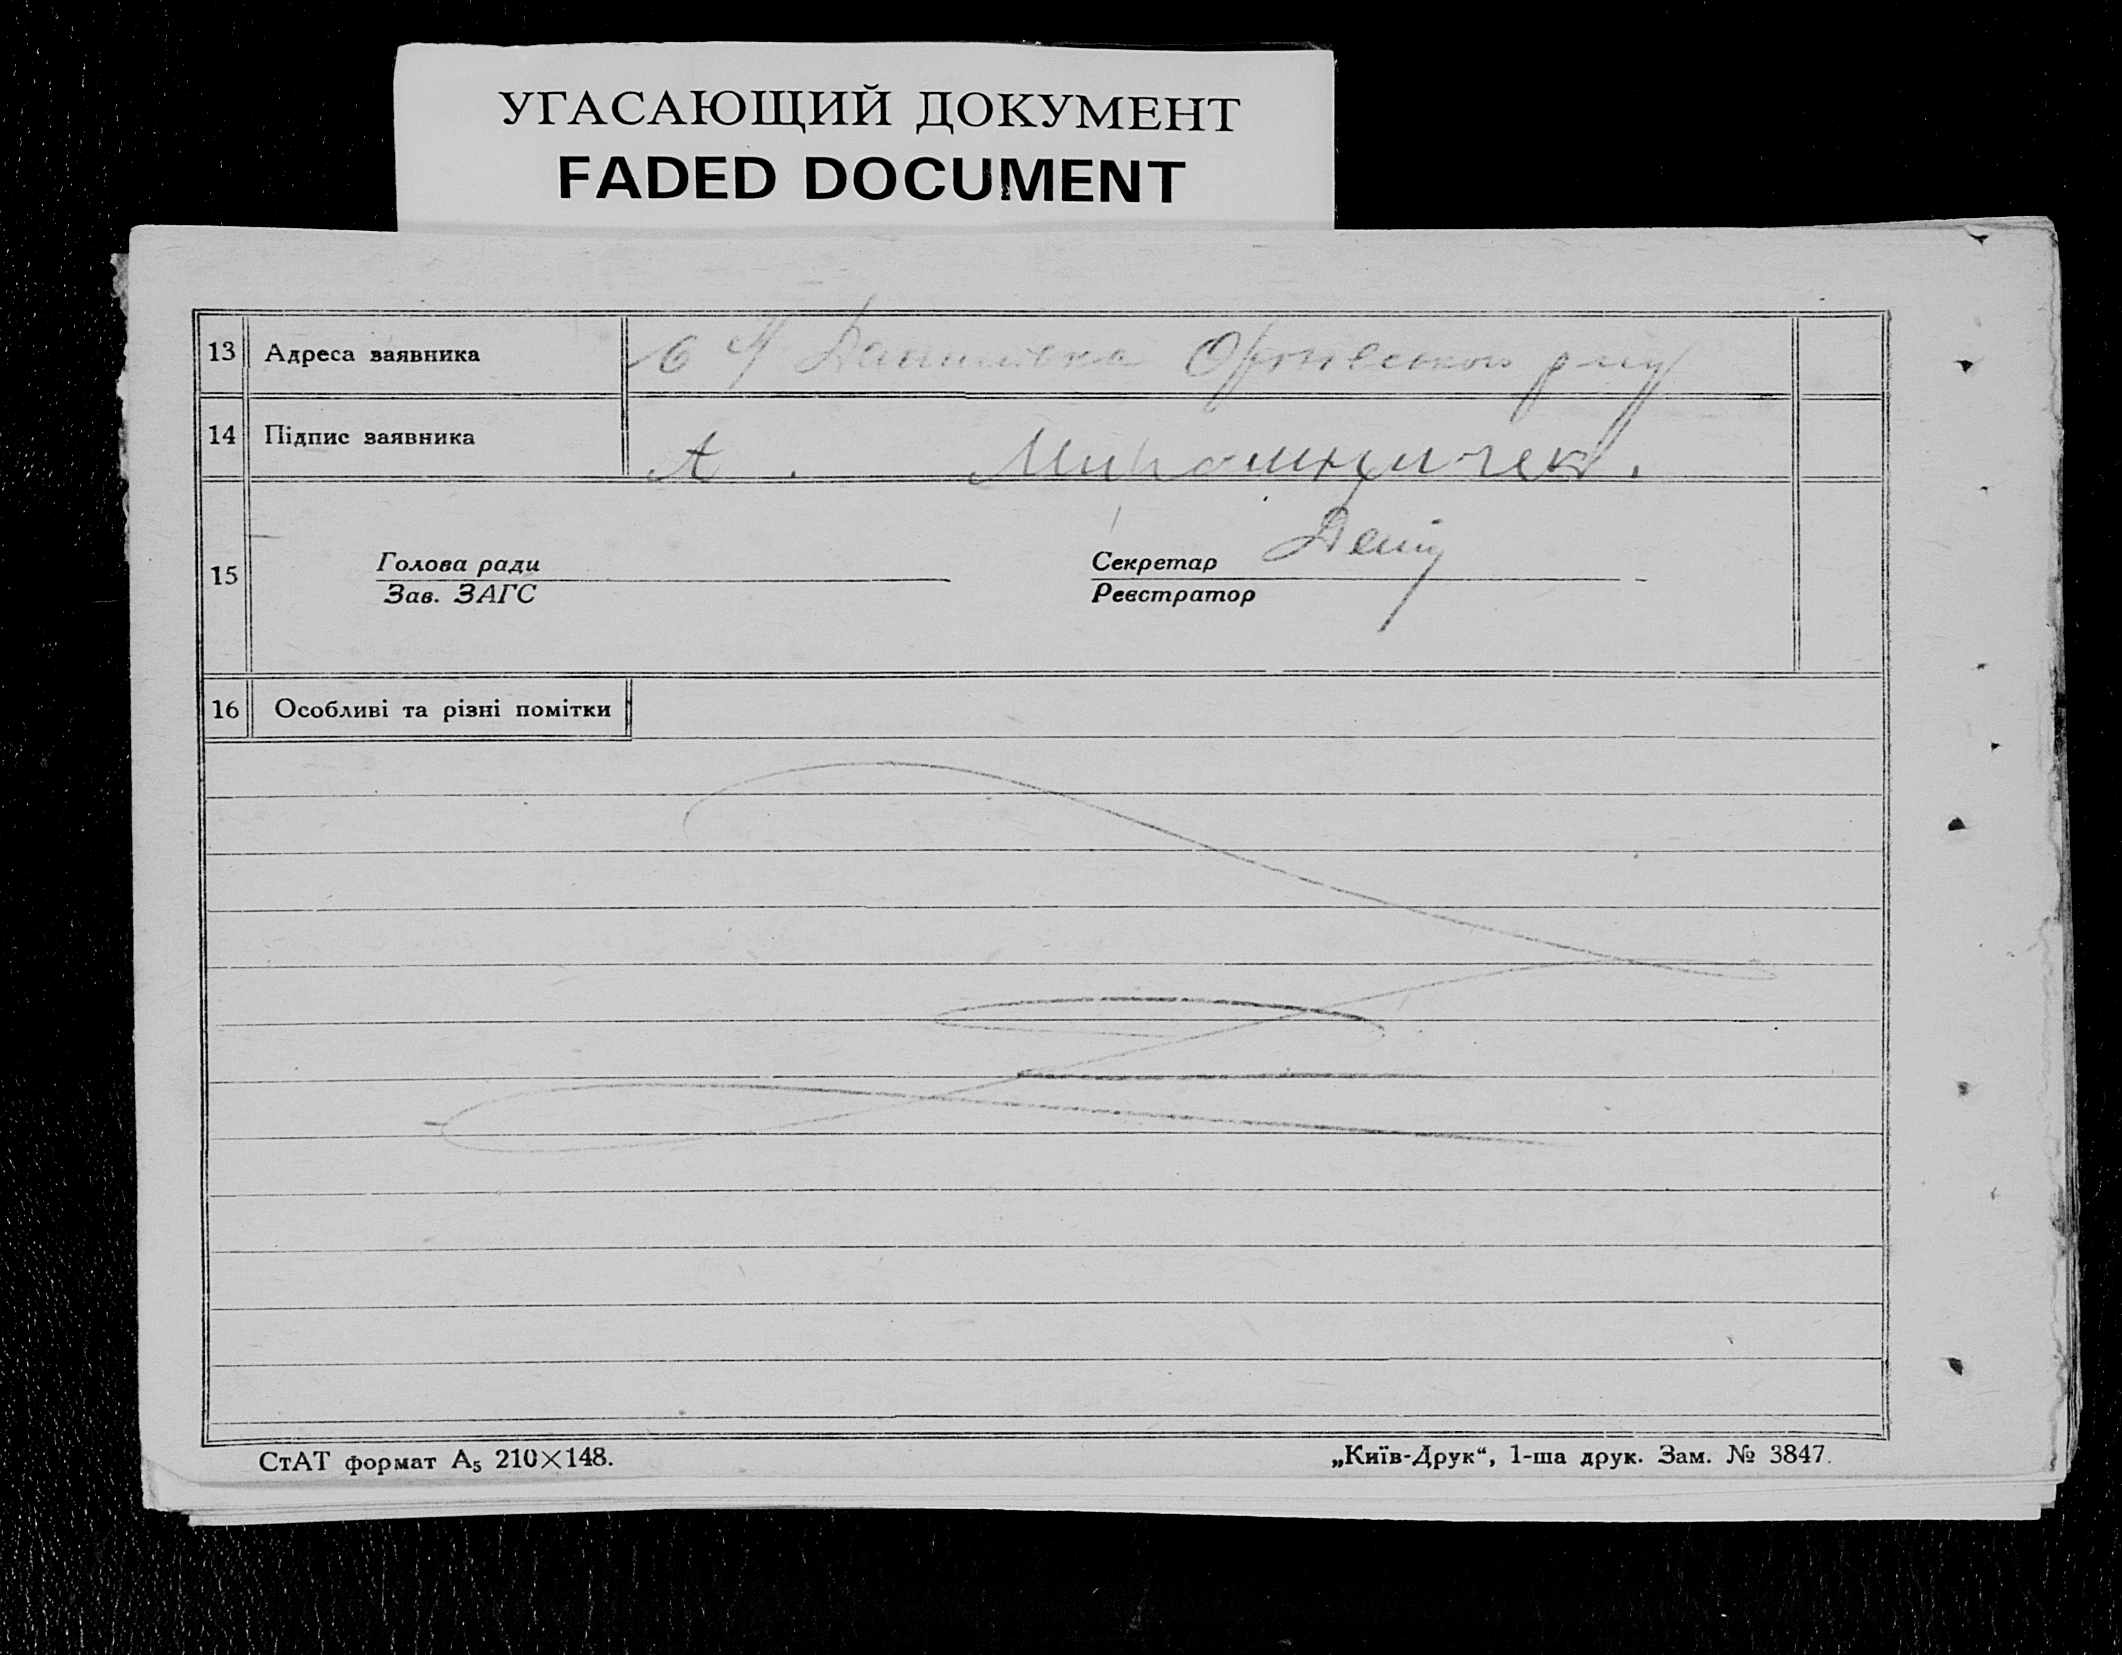 УГАСАЮЩИЙ ДОКУМЕНТ
FADED DOCUMENT
13 Адреса заявника Данилівка
14 Підпис заявника А. Мирошниченко.
15 Голова ради Секретар
Зав. ЗАГС Реєстратор
16 Особливі та різні помітки
СтАТ формат А5 210×148. „Київ-Друк“, 1-ша друк. Зам. № 3847.